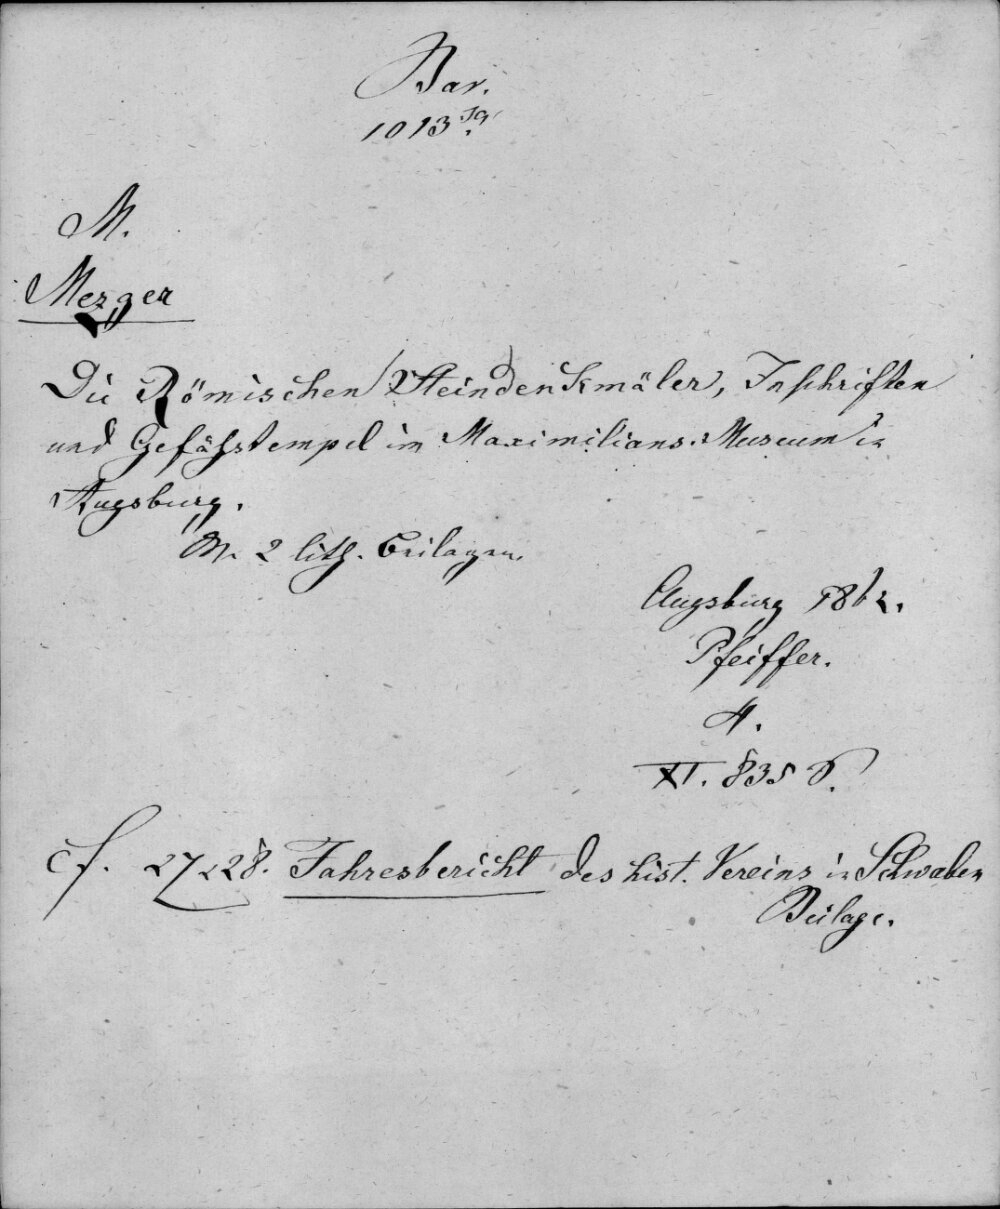 Bav.
1013
M.
Mezger
Die Römischen Steindenkmäler, Inschriften
und Gefäßstempel im Maximilians-Museum in
Augsburg.
M. 2 lith. Beilagen.
Augsburg 1862.
Pfeiffer.
4.
XI. 835 S.
cf. 27 u 28. Jahresbericht des hist. Vereins in Schwaben
Beilage.